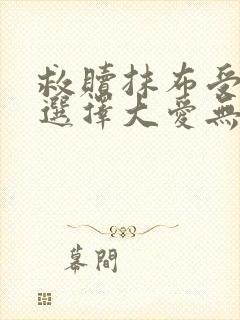 救贖抹布受
選擇大愛無
幕間